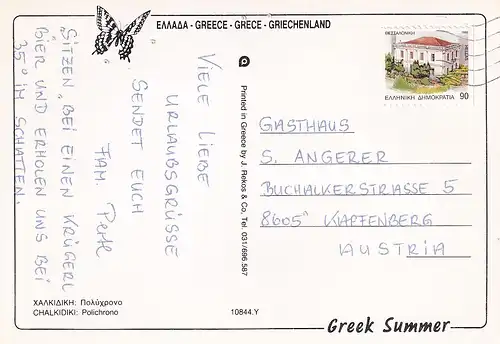 ΕΛΛΑΔΑ - GREECE - GRECE - GRIECHENLAND
VIELE LIEBE
URLAUBSGRÜSSE
SENDET EUCH
FAM.
SITZEN BEI EINEN KRÜGERL
BIER UND ERHOLEN UNS BEI
35° IM SCHATTEN.
Printed in Greece by J. Rekos & Co, Tel. 031/696.587
ΘΕΣΣΑΛΟΝΙΚΗ
ΕΛΛΗΝΙΚΗ ΔΗΜΟΚΡΑΤΙΑ 90
GASTHAUS
S. ANGERER
BUCHALKERSTRASSE 5
8605 KAPFENBERG
AUSTRIA
ΧΑΛΚΙΔΙΚΗ: Πολύχρονο
CHALKIDIKI: Polichrono
10844.Y
Greek Summer